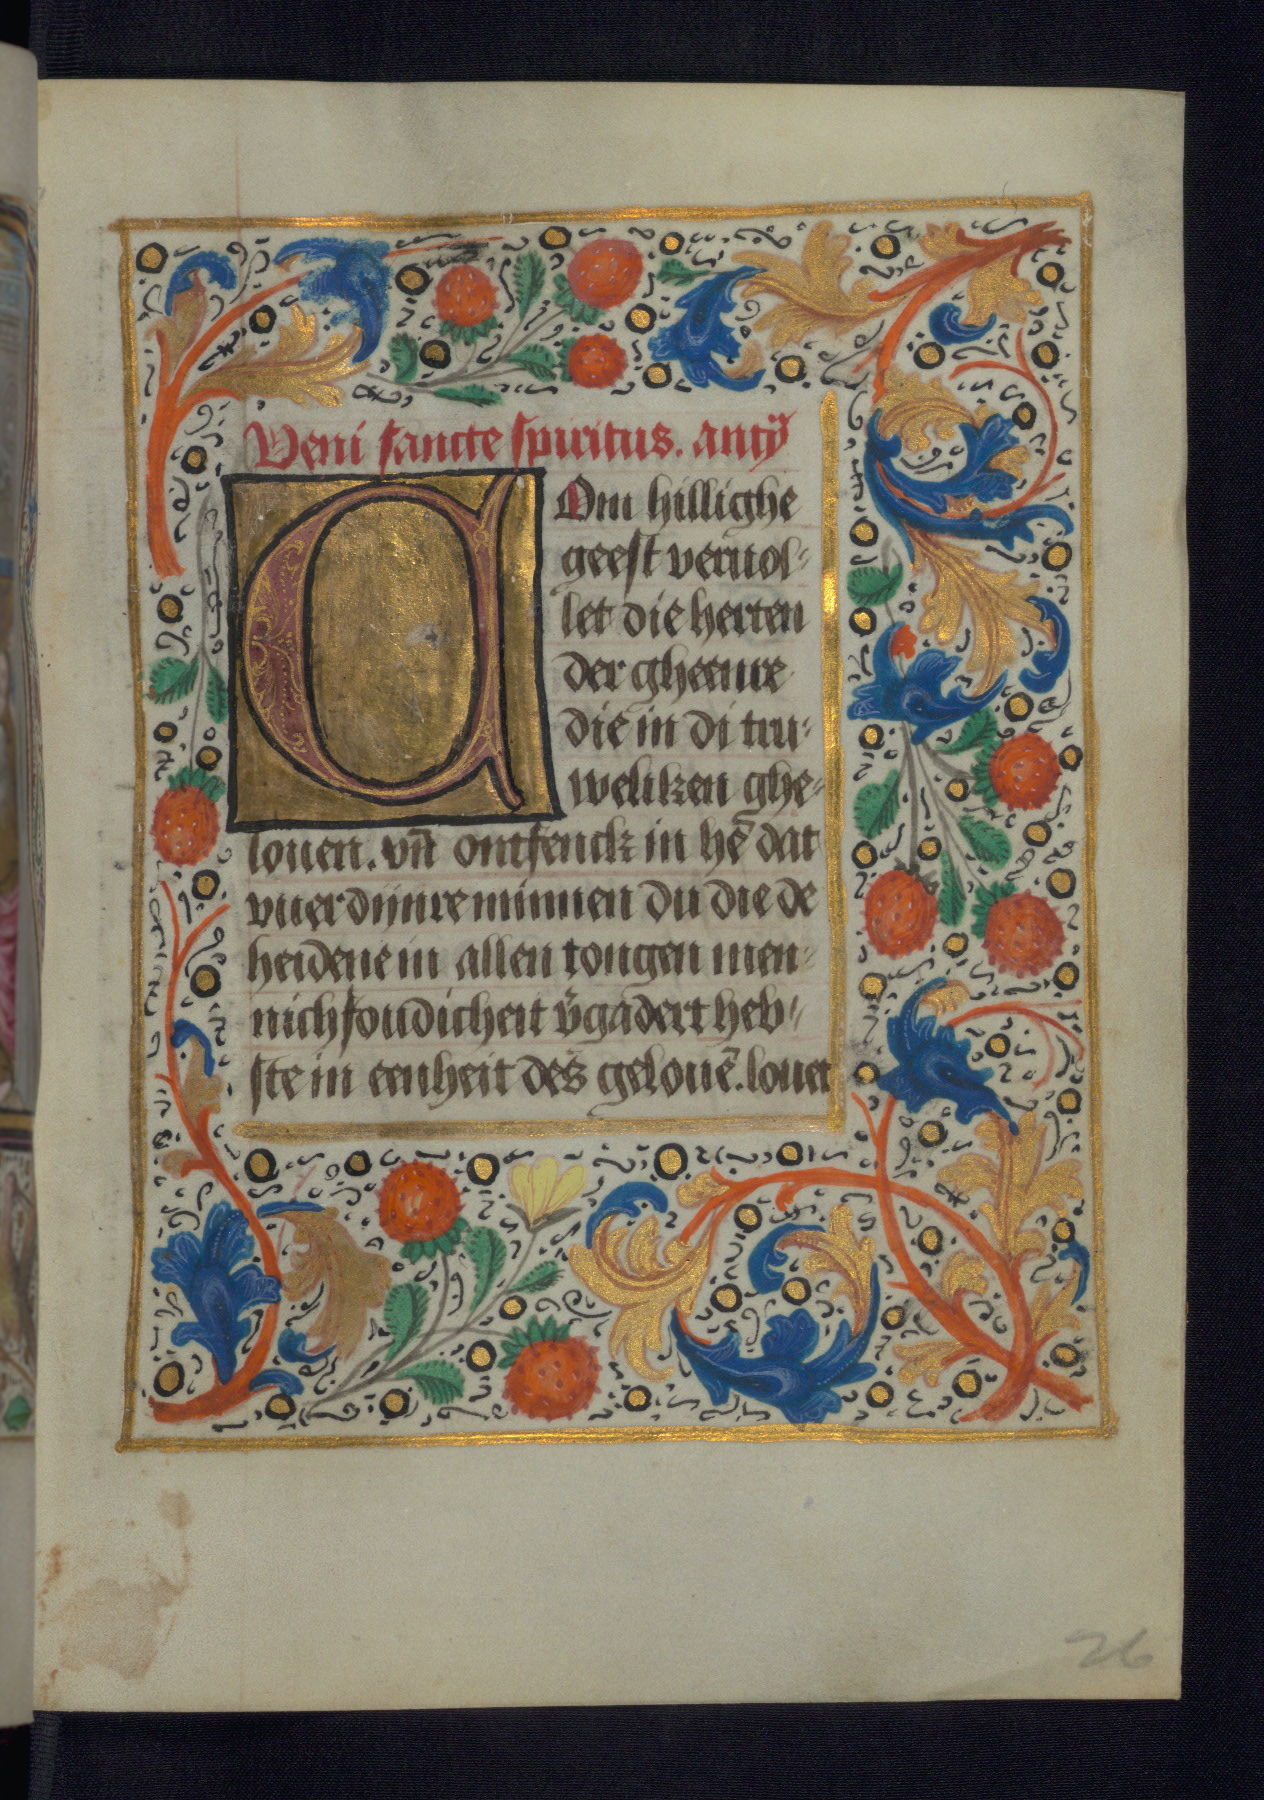 Veni sancte spiritus. antỹ
COm hillighe
geest veruol-
let die herten
der gheenre
die in di tru-
weliken ghe-
louen. vn̄ ontfenck in hē dat
vuer dijnre minnen du die de
heidene in allen tongen men-
nichfoudicheit v̄gadert heb-
ste in eenheit des gelouē. louet
26